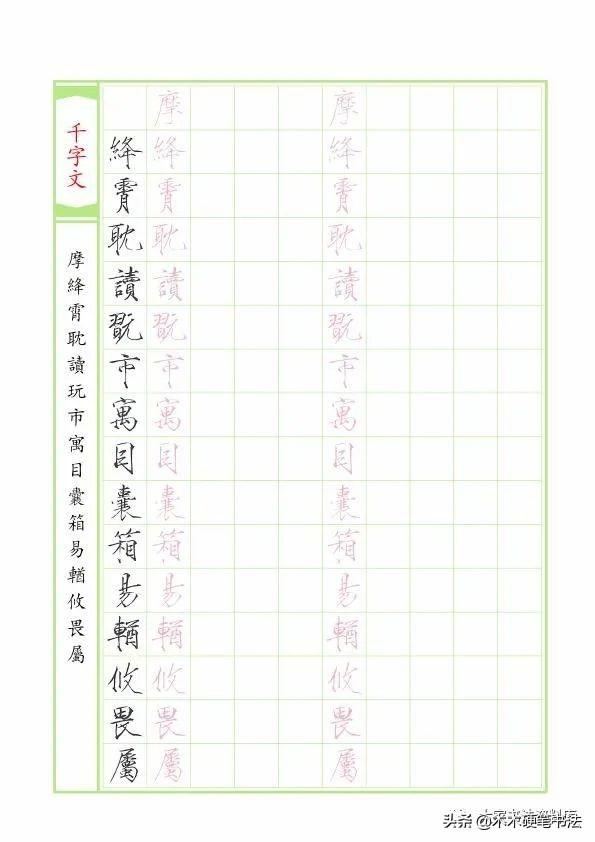 千字文
摩絳霄耽讀玩市寓目囊箱易輶攸畏屬
絳霄耽讀翫市寓目囊箱易輶攸畏屬
摩絳霄耽讀翫市寓目囊箱易輶攸畏屬
摩絳霄耽讀翫市寓目囊箱易輶攸畏屬
头条 @木木硬笔书法